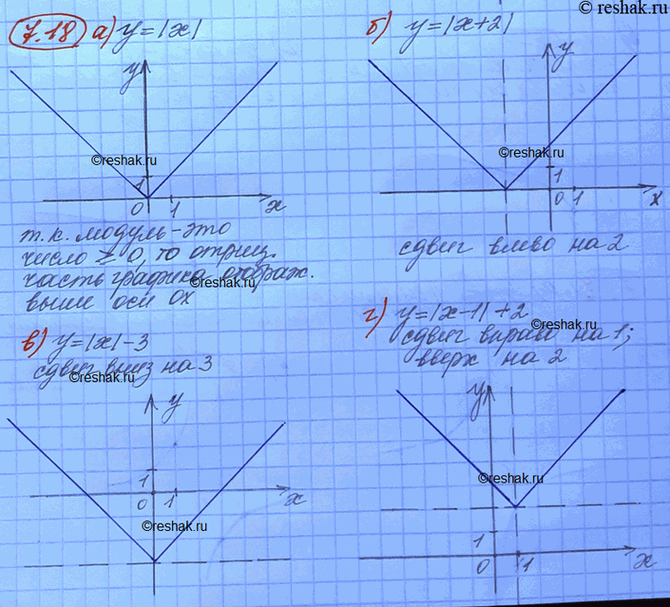 © reshak.ru
7.18 а) y=|x|
б) y=|x+2|
y
1
0 1 x
©reshak.ru
y
1
0 1 x
©reshak.ru
т.к. модуль-это
число ≥ 0, то отриц.
часть графика отображ.
выше оси Ox
©reshak.ru
сдвиг влево на 2
в) y=|x|-3
сдвиг вниз на 3
©reshak.ru
г) y=|x-1|+2
сдвиг вправо на 1;
вверх на 2
©reshak.ru
y
1
0 1 x
©reshak.ru
y
1
0 1 x
©reshak.ru